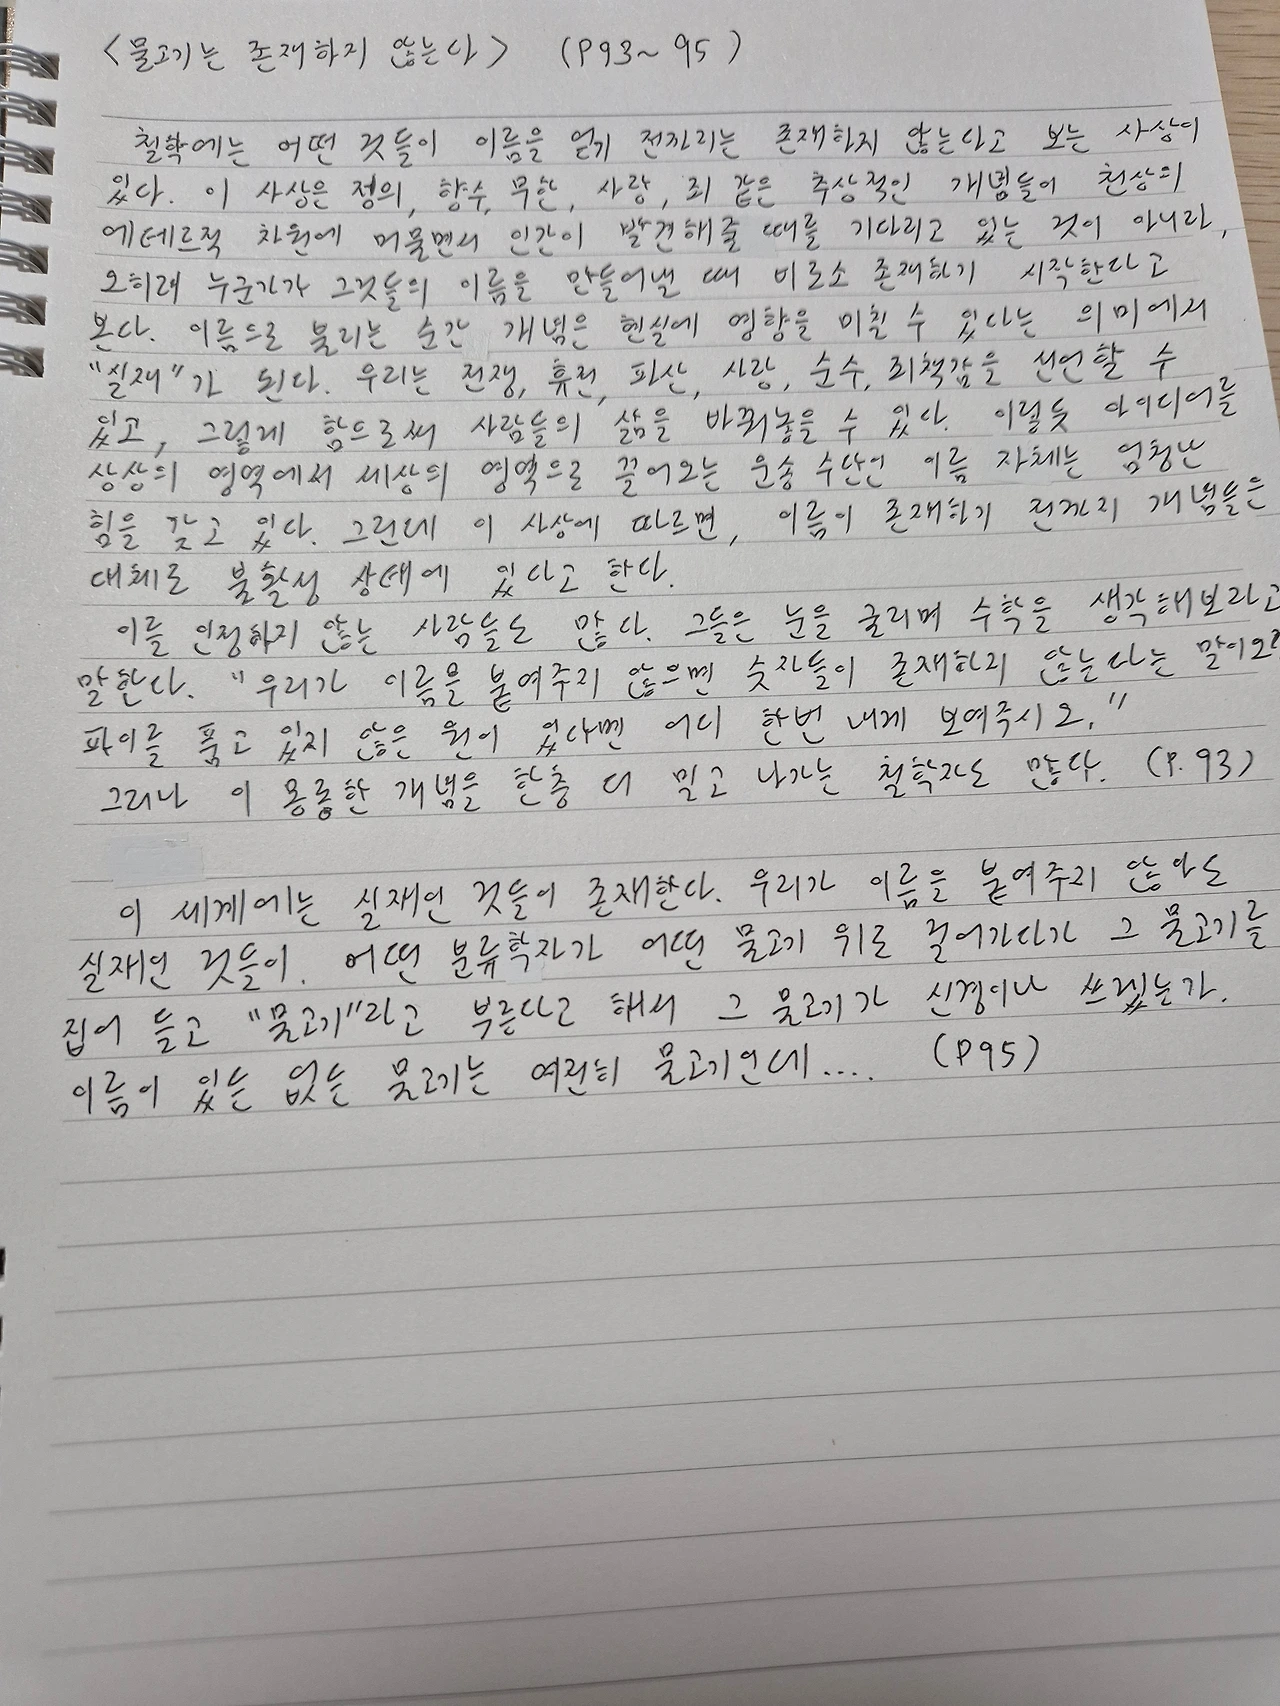 <물고기는 존재하지 않는다> (P93~95)
철학에는 어떤 것들이 이름을 얻기 전까지는 존재하지 않는다고 보는 사상이
있다. 이 사상은 정의, 향수, 무한, 사랑, 죄 같은 추상적인 개념들이 천상의
에테르적 차원에 머물면서 인간이 발견해줄 때를 기다리고 있는 것이 아니라,
오히려 누군가가 그것들의 이름을 만들어낼 때 비로소 존재하기 시작한다고
본다. 이름으로 불리는 순간 개념은 현실에 영향을 미칠 수 있다는 의미에서
"실재"가 된다. 우리는 전쟁, 휴전, 파산, 사랑, 순수, 죄책감을 선언할 수
있고, 그렇게 함으로써 사람들의 삶을 바꿔놓을 수 있다. 이렇듯 아이디어를
상상의 영역에서 세상의 영역으로 끌어오는 운송 수단인 이름 자체는 엄청난
힘을 갖고 있다. 그런데 이 사상에 따르면, 이름이 존재하기 전까지 개념들은
대체로 불활성 상태에 있다고 한다.
이를 인정하지 않는 사람들도 많다. 그들은 눈을 굴리며 수학을 생각해보라고
말한다. "우리가 이름을 붙여주지 않으면 숫자들이 존재하지 않는다는 말이오?
파이를 품고 있지 않은 원이 있다면 어디 한번 내게 보여주시오."
그러나 이 몽롱한 개념을 한층 더 밀고 나가는 철학자도 많다. (P.93)
이 세계에는 실재인 것들이 존재한다. 우리가 이름을 붙여주지 않아도
실재인 것들이. 어떤 분류학자가 어떤 물고기 위로 걸어가다가 그 물고기를
집어 들고 "물고기"라고 부른다고 해서 그 물고기가 신경이나 쓰겠는가.
이름이 있든 없든 물고기는 여전히 물고기인데.... (P95)